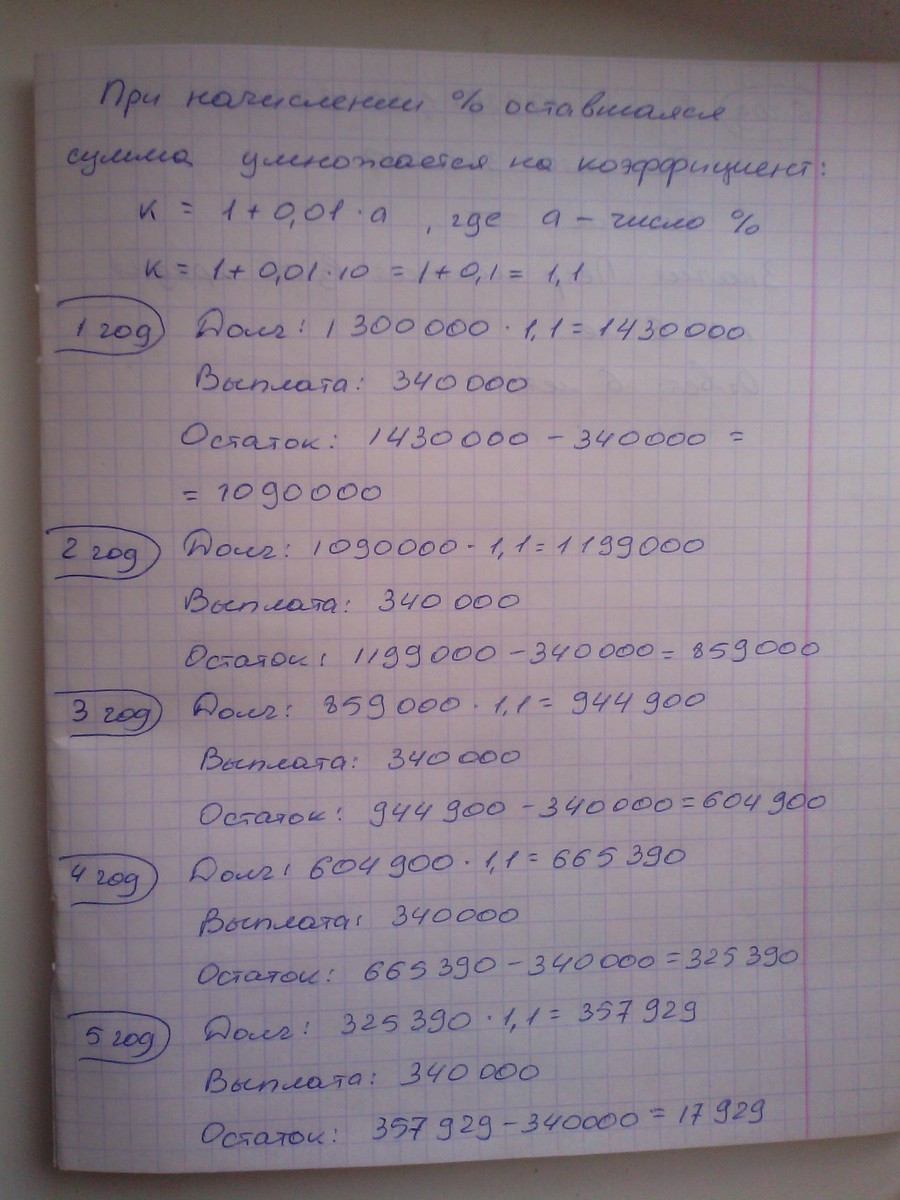 При начислении % оставшаяся
сумма умножается на коэффициент:
к = 1 + 0,01 · а , где а - число %
к = 1 + 0,01·10 = 1 + 0,1 = 1,1
1 год Долг: 1 300 000 · 1,1 = 1430000
Выплата: 340000
Остаток: 1430000 - 340000 =
= 1090000
2 год Долг: 1090000 · 1,1 = 1199000
Выплата: 340 000
Остаток: 1199000 - 340000 = 859000
3 год Долг: 859000 · 1,1 = 944 900
Выплата: 340000
Остаток: 944 900 - 340000 = 604 900
4 год Долг: 604 900 · 1,1 = 665 390
Выплата: 340000
Остаток: 665 390 - 340000 = 325 390
5 год Долг: 325 390 · 1,1 = 357 929
Выплата: 340 000
Остаток: 357 929 - 340000 = 17 929